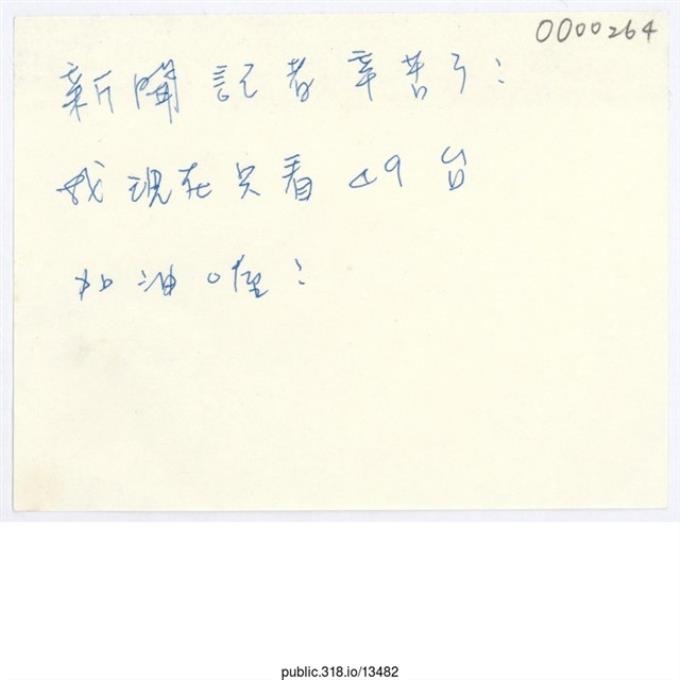 0000264
新聞記者辛苦了!
我現在只看49台
加油喔!
public.318.io/13482